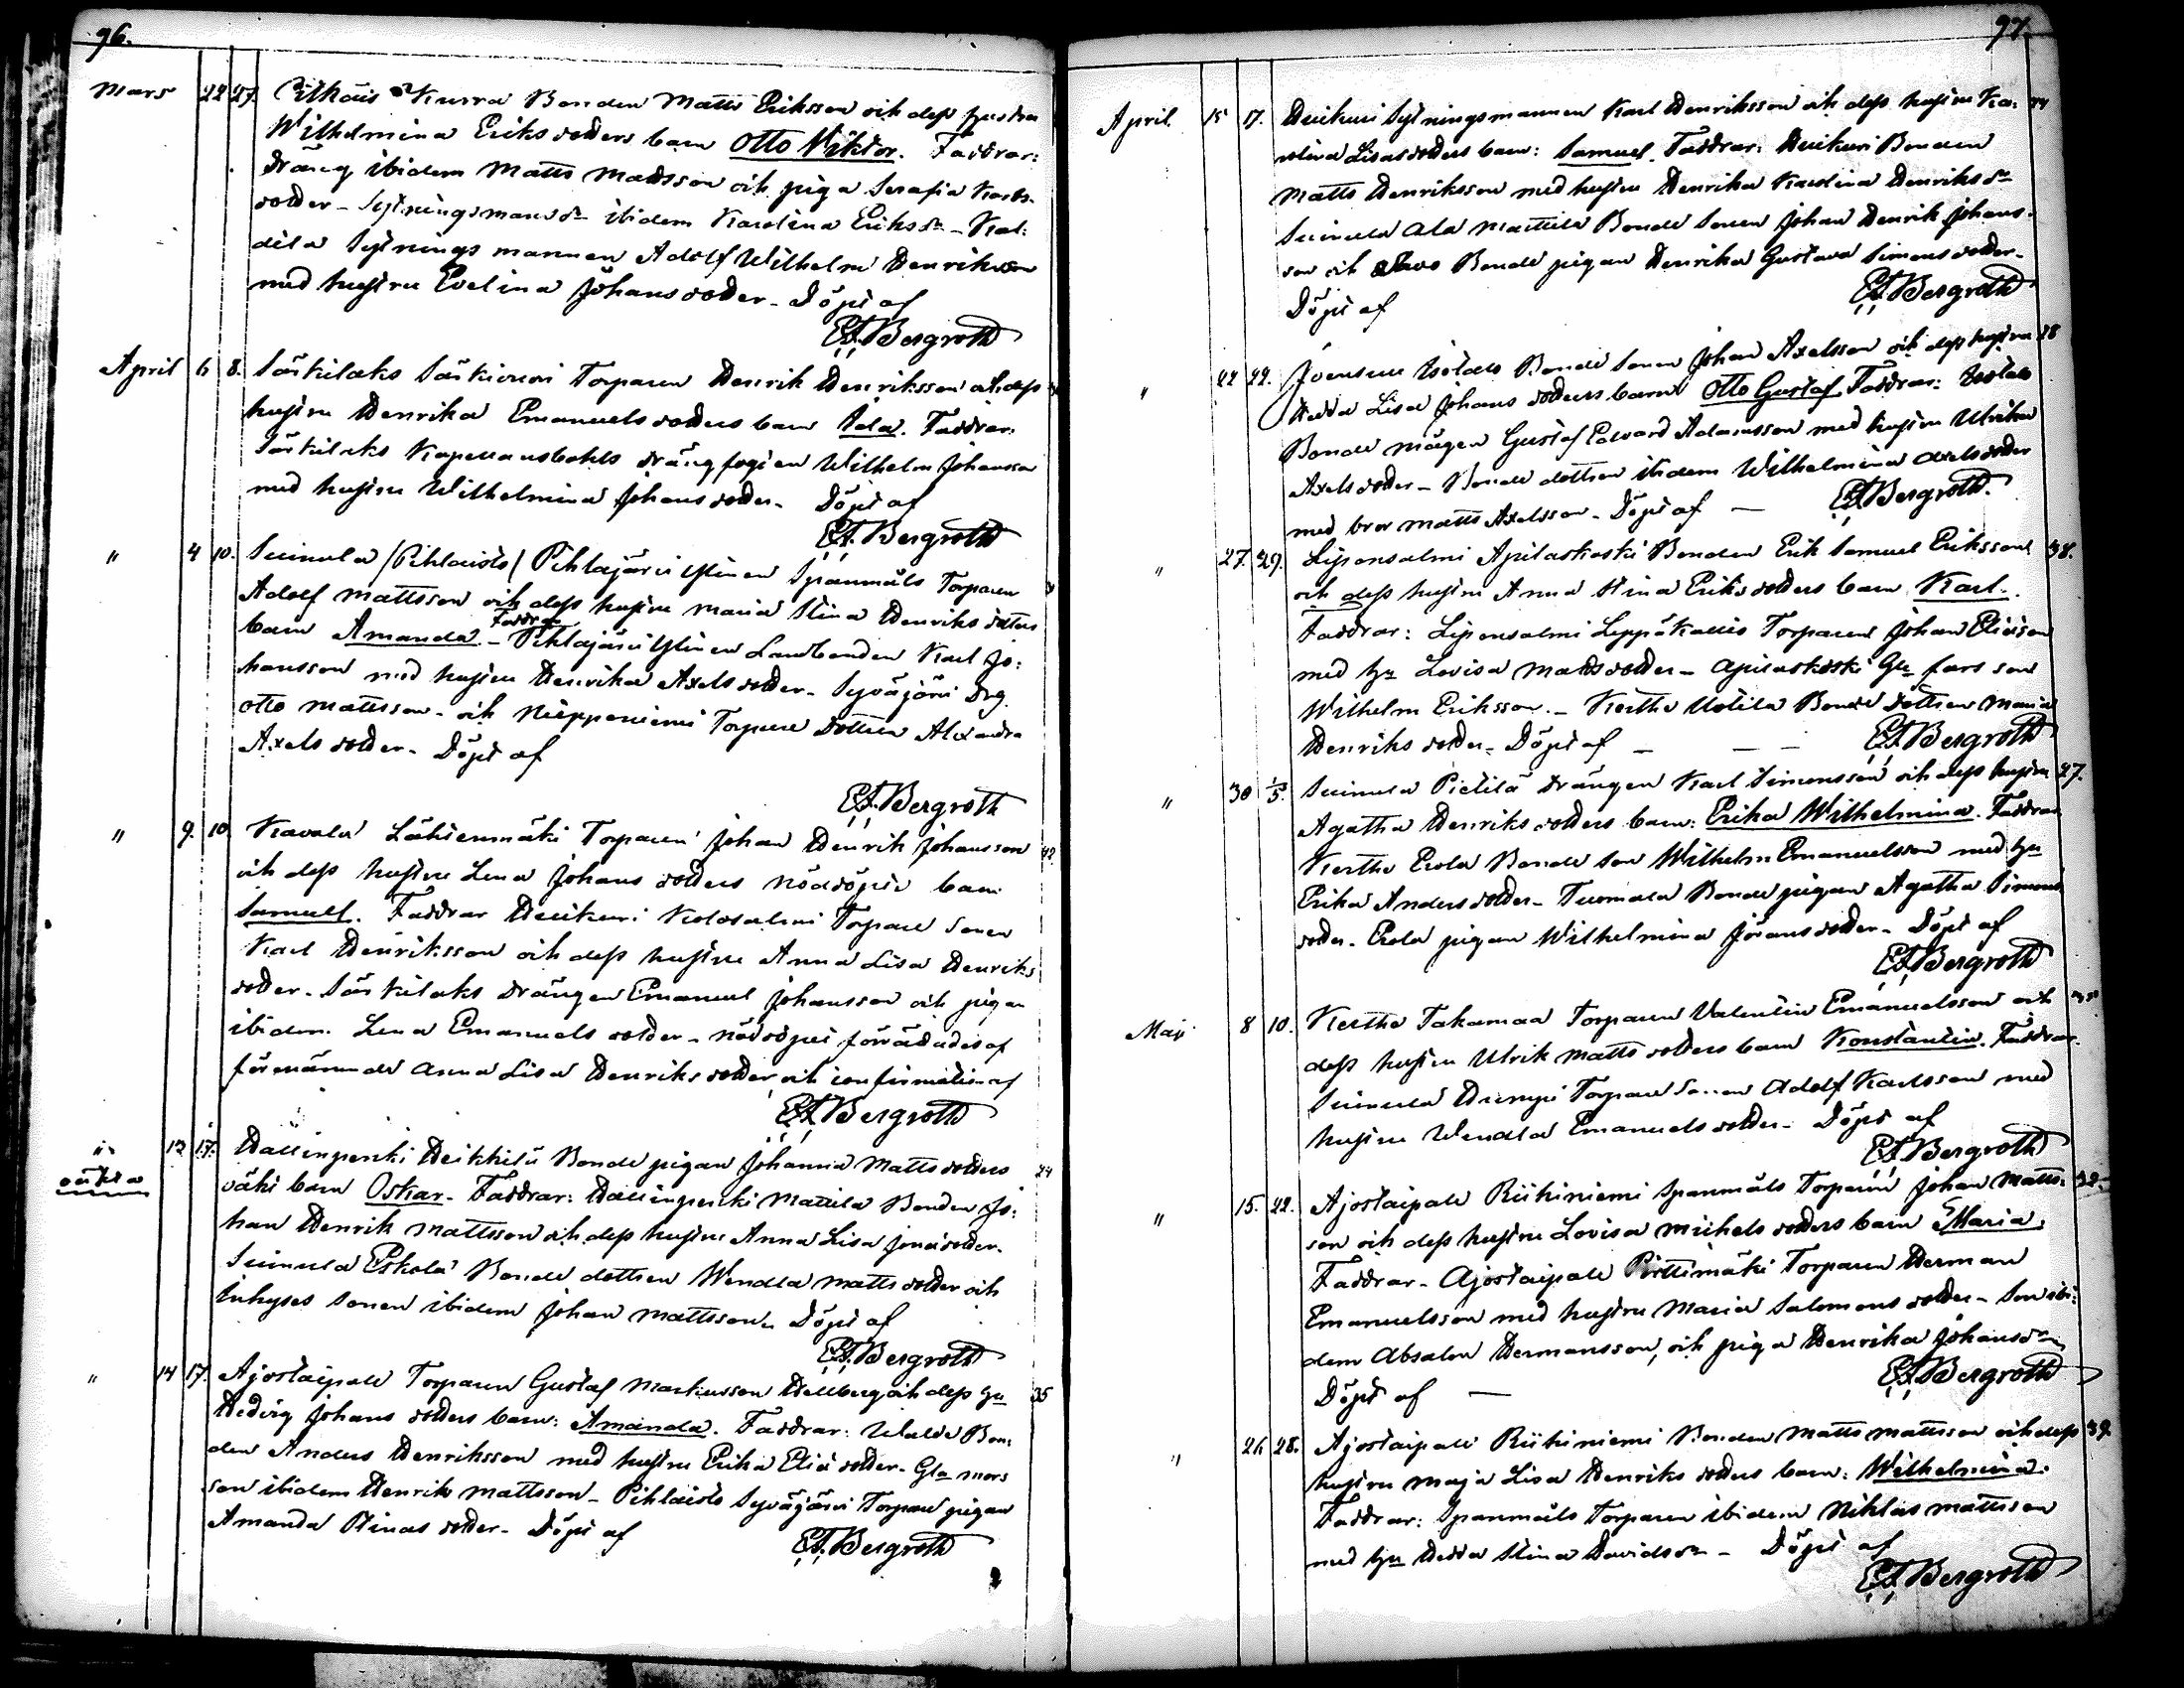 96.
Mars 22 27. Pitkäis Kurra Bonden Matts Eriksson och dess hustru
Wilhelmina Eriksdotters barn Otto Wiktor. Faddrar:
dräng ibidem Matts Mattsson och piga Serafia Karls-
dotter - Sytningsmans dr ibidem Karolina Eriksdr - Kal:
dila Sytningsmannen Adolf Wilhelm Henriksson
med hustru Evelina Johansdotter - Döpt af
E.F. Bergroth
April 6 8. Särkilaks Särkivuori Torparen Henrik Henriksson och dess
hustru Henrika Emanuelsdotters barn Ida. Faddrar:
Särkilaks Kapellansbohls drängfogien Wilhelm Johansson
med hustru Wilhelmina Johansdotter - Döpt af
E.F. Bergroth
" 4 10. Suinula /Pihlaisto/ Pihlajärvi Ylinen Spanmåls Torparen
Adolf Mattsson och dess hustru Maria Stina Henriks dotters
barn Amanda - Faddrar Pihlajärvi Ylinen Landbonden Karl Jo:
hansson med hustru Henrika Axelsdotter - Syväjärvi Drg.
Otto Mattsson - och Nieppeniemi Torpare dottren Alexandra
Axelsdotter - Döpt af
E.F. Bergroth
" 9. 10. Kavala Lähteenmäki Torparen Johan Henrik Johansson 42.
och dess hustru Lena Johansdotters nöddöpte barn
Samuel. Faddrar Heikuri Kolosalmi Torpare Sonen
Karl Henriksson och dess hustru Anna Lisa Henriks
dotter - Särkilaks drängen Emanuel Johansson och pigan
ibidem Lena Emanuelsdotter - nöddopet förrättades af
förnämnde Anna Lisa Henriksdotter och confirmation af
E.F. Bergroth
" oäkta 12 17. Hallinpenki Heikkilä Bonde pigan Johanna Mattsdotters 24
oäkta barn Oskar - Faddrar: Hallinpenki Mattila Bonden Jo:
han Henrik Mattsson och dess hustru Anna Lisa Jonædotter.
Suinula Eskola Bonde dottren Wendla Mattsdotter och
Inhyses Sonen ibidem Johan Mattsson. Döpt af
E.F. Bergroth
" 14 17. Ajostaipale Torparen Gustaf Markusson Hellberg och dess hu 35
Hedvig Johansdotters barn: Amanda. Faddrar: Uotila Bon:
den Anders Henriksson med hustru Erika Eliædotter - Gla mors
son ibidem Henrik Mattsson - Pihlaisto Syväjärvi Torpare pigan
Amanda Stinasdotter - Döpt af
E.F. Bergroth
97.
April 15 17. Heikuri Sytningsmannen Karl Henriksson och dess hustru Ka: 44
rolina Lisasdotters barn: Samuel. Faddrar: Heikuri Bonden
Matts Henriksson med hustru Henrika Karolina Henriksdr
Suinula Ala Mattila Bonde Sonen Johan Henrik Johans-
son och Bonde pigan Henrika Gustava Simonsdotter -
Döpt af
E.F. Bergroth
" 22 22. Jvensuu Isotalo Bonde Sonen Johan Axelsson och dess hustru 28
Hedda Lisa Johansdotters barn Otto Gustaf. Faddrar: Isotalo
Bonde mågen Gustaf Edvard Adamsson med hustru Ulrika
Axelsdotter - Bonde dottren ibidem Wilhelmina Axelsdotter
med bror Matts Axelsson - Döpt af - E.F. Bergroth.
" 27. 29. Liponsalmi Apilaskoski Bonden Erik Samuel Eriksson 38.
och dess hustru Anna Stina Eriksdotters barn Karl.
Faddrar: Liponsalmi Leppäkallio Torparen Johan Eliæson
med hu Lovisa Mattsdotter - Apilaskoski Gu fars son
Wilhelm Eriksson. - Kertte Uotila Bonde dottren Maria
Henriksdotter - Döpt af - - - E.F. Bergroth
" 30 1/5. Suinula Pietilä drängen Karl Simonsson och dess hustru 27.
Agatha Henriksdotters barn: Erika Wilhelmina. Faddrar
Kertte Erola Bonde Son Wilhelm Emanuelsson med hu
Erika Andersdotter - Tuomala Bonde pigan Agatha Simons
dotter - Erola pigan Wilhelmina Göransdotter - Döpt af
E.F. Bergroth
Maji 8 10. Kertte Takamaa Torparen Valentin Emanuelsson och
dess hustru Ulrik Mattsdotters barn Konstantin. Faddrar
Suinula Humpi Torpare Sonen Adolf Karlsson med
hustru Wendla Emanuelsdotter - Döpt af
E.F. Bergroth
" 15. 22. Ajostaipale Riihiniemi Spanmåls Torparen Johan Matts: 32.
son och dess hustru Lovisa Michelsdotters barn Maria.
Faddrar - Ajostaipale Pirttimäki Torparen Herman
Emanuelsson med hustru Maria Salomonsdotter - Son ibi:
dem Absalon Hermansson, och piga Henrika Johansdr
Döpt af - E.F. Bergroth
" 26 28. Ajostaipale Riihiniemi Bonden Matts Mattsson och dess 39.
hustru Maja Lisa Henriksdotters barn: Wilhelmina.
Faddrar: Spanmåls Torparen ibidem Niklas Mattsson
med hu Hedda Stina Davidsdr - Döpt af
E.F. Bergroth